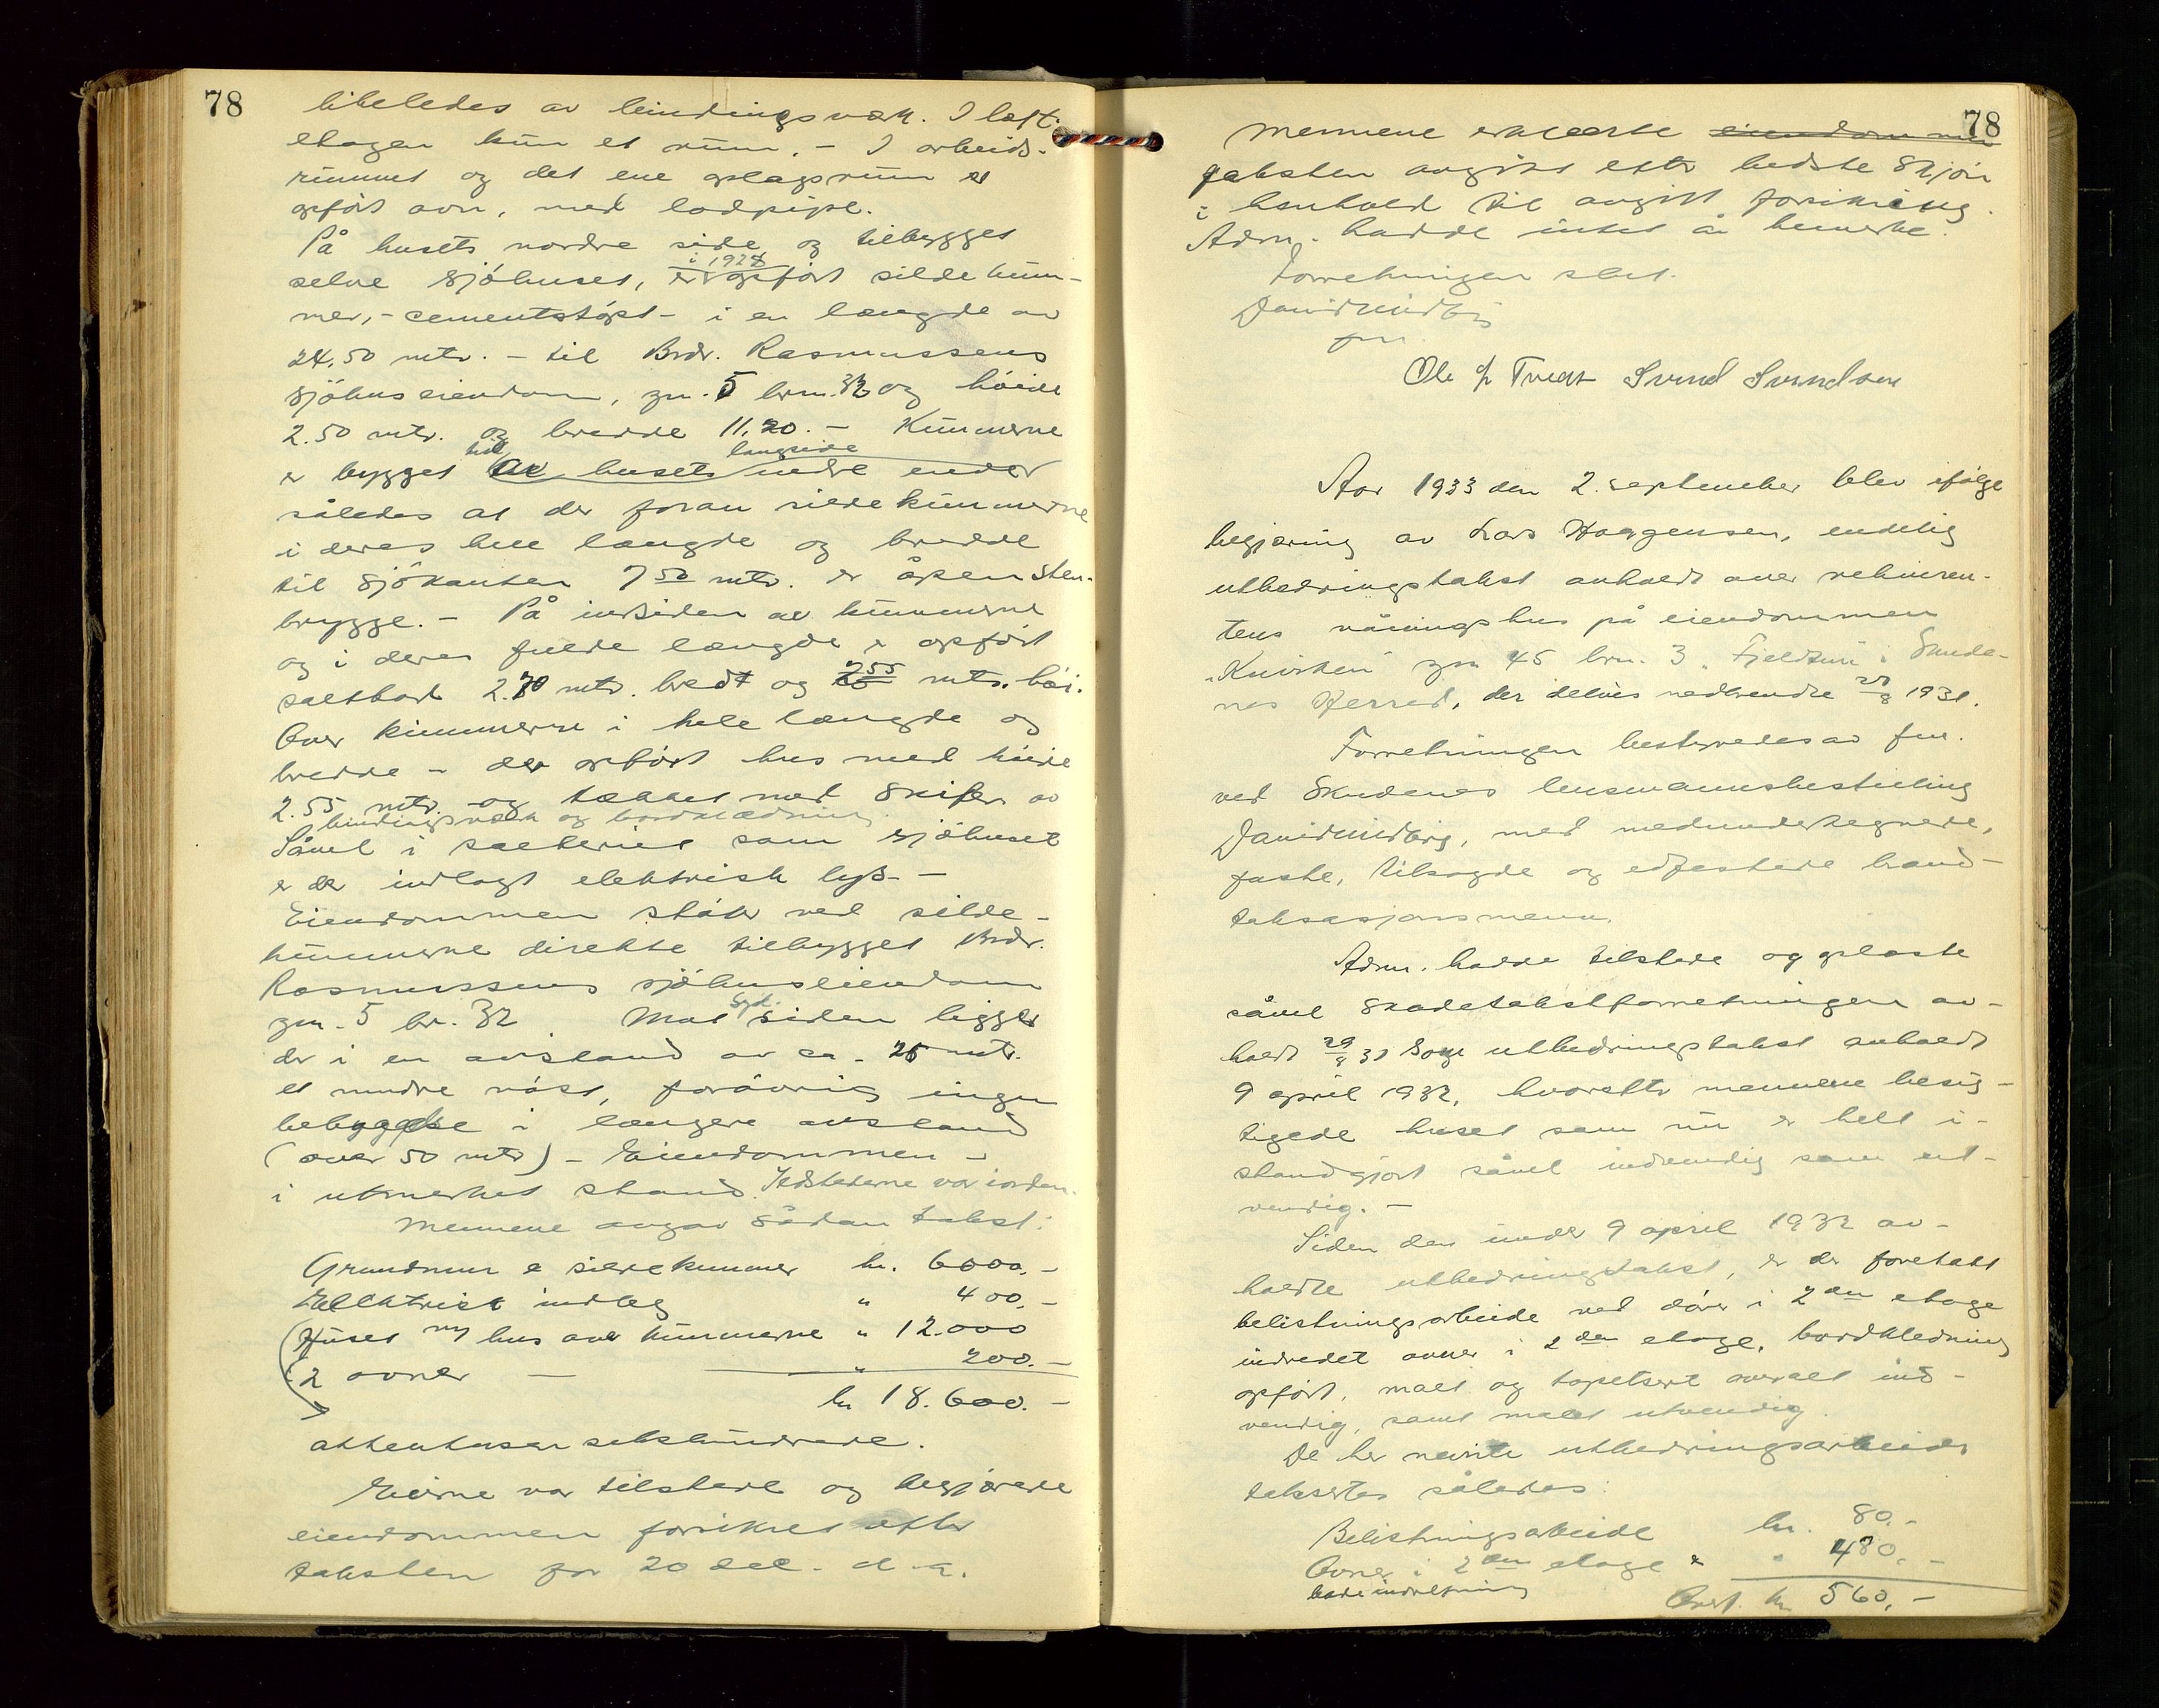 78
likeledes av bindingsverk. I loft-
etagen kun et rum. - I arbeids-
rummet og det ene oplagsrum er
opført ovn, med lodpipe.
På husets nordre side og tilbygget
i 1927
selve sjøhuset, er opført silde kum-
mer, - cementstøpt - i en længde av
24,50 mtr. - til Brdr. Rasmussens
sjøhuseiendom, gn. 5 brn. 32 og høide
2.50 mtr. og bredde 11.20. - Kummerne
til langside
er bygget av husets indre ender
således at der foran sildekummerne
i deres hele længde og bredde
til sjøkanten 7 50 mtr. er åpen sten-
brygge. - På indsiden av kummerne
og i deres fulde længde er opført
saltbod 2.70 mtr. bredt og 2 55 mtr. høi.
Over kummerne i hele længde og
bredde - der opført hus med høide
2.55 mtr. og tækket med skifer av
bindingsverk og bordklædning.
Såvel i salteriet som sjøhuset
er der indlagt elektrisk lys. -
Eiendommen støter ved silde-
kummerne direkte tilbygget Brdr.
Rasmussens sjøhuseiendom
gn. 5 br. 32. Mot syd. siden ligger
der i en avstand av ca. 25 mtr.
et mindre nøst, forøvrig ingen
bebyggelse i længere avstand
(over 50 mtr) - Eiendommen -
i utmerket stand. Ildstederne var i orden.
Mennene avgav sådan takst:
Grundmur & sildekummer kr. 6000.-
Ellektrisk indleg " 400.-
Huset og hus over kummerne " 12.000
2 ovner - " 200.-
kr 18.600.-
attentusen sekshundrede.
Eierne var tilstede og begjærede
eiendommen forsikret efter
taksten for 20 del. d. a.
78
Mennene erklærte eiendommen
taksten avgitt efter bedste skjøn
i henhold til avgitt forsikring.
Adm. hadde intet å bemerke.
Forretningen slut.
David Midbøe
fm
Ole G Tveit Svend Svendsen
Aar 1933 den 2. september blev ifølge
begjæring av Lars Haagensen, endelig
utbedringstakst avholdt over rekviren-
tens våningshus på eiendommen
"Kvirken" gn 45 brn. 3 "Fjeldtun" i Skude-
nes Herred, der delvis nedbrendte 28/8 1931.
Forretningen bestyredes av fm.
ved Skudenes lensmannsbestilling
David Midbøe, med medundertegnede,
faste, tilsagde og edfestede brand-
taksasjonsmenn.
Adm. hadde tilstede og oplæste
såvel skadetakstforretningen av-
holdt 29/8 31 som utbedringstakst avholdt
9 april 1932, hvorefter mennene besig-
tigede huset som nu er helt i-
standgjort såvel indvendig som ut-
vendig. -
Siden den under 9 april 1932 av-
holdte utbedringstakst, er der foretatt
belistningsarbeide ved dører i 2 den etage
indredet ovner i 2 den etage, bordklædning
opført, malt og tapetsert overalt ind-
vendig, samt malet utvendig.
De her nevnte utbedringsarbeider
takseres således:
Belistningsarbeide kr. 80.-
Ovner i 2 den etage & " 480.-
bordindretning
Overf. kr 560.-